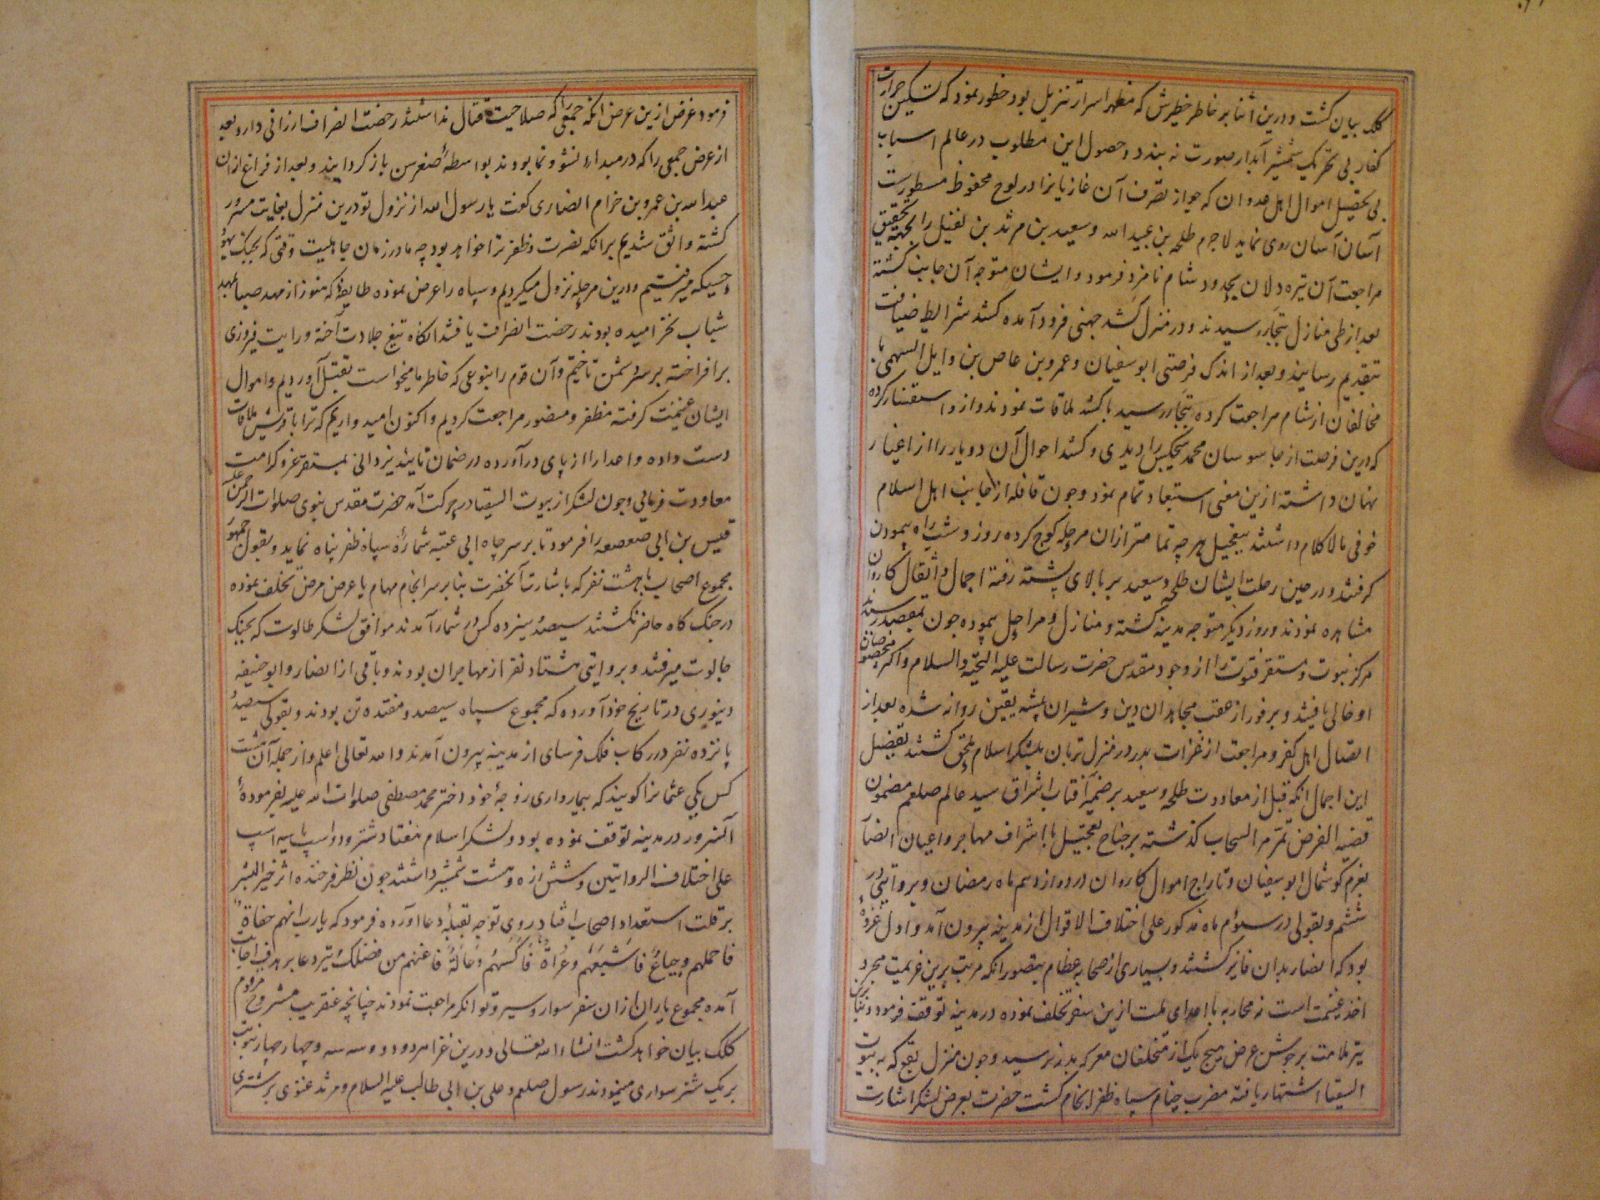 کلک بیان گشت و درین اثنا بر خاطر خطیرش که مظهر اسرار تنزیل بود خطور نمود که تسکین حرارت
کفار بی تحریک شمشیر آبدار صورت نه بندد و حصول این مطلوب در عالم اسباب
بی تحصیل اموال اهل عدوان که جواز تصرف آن غازیانرا در لوح محفوظ مسطورست
آسان آسان روی ننماید لاجرم طلحه بن عبید الله و سعید بن مرثد بن نفیل را بجهة تحقیق
مراجعت آن تیره دلان بحدود شام نامزد فرمود و ایشان متوجه آن جانب گشته
بعد از طی منازل بتجار رسیدند و در منزل کشد جهنی فرود آمده کشد شرایط ضیافت
بتقدیم رسانید و بعد از اندک فرصتی ابو سفیان و عمرو بن عاص بن وایل السهمی با
مخالفان از شام مراجعت کرده بتجار رسید با کشد ملاقات نمودند و از و استفسار کرده
که درین فرصت از جاسوسان محمد هیچکس را دیدی و کشد احوال آن دو یار را از اغیار
نهان داشته ازین معنی استبعاد تمام نمود و چون قافله از جانب اهل اسلام
خوفی مالاکلام داشتند بتعجیل هر چه تمامتر ازان مرحله کوچ کرده روز و شب راه پیمودن
گرفتند و در حین رحلت ایشان طلحه و سعید بر بالای پشته رفته احمال و اثقال کاروان
مشاهده نمودند و روز دیگر متوجه مدینه گشته و منازل و مراحل پیموده چون بمقصد رسیدند
مرکز نبوت و مستقر فتوت را از وجود مقدس حضرت رسالت علیه التحیة والسلام و اکثر مخصوصان
او خالی یافتند و بر فور از عقب مجاهدان دین و شیران بیشه یقین روانه شده بعد از
اتصال اهل کفر و مراجعت از غزات بدر در منزل تربان بلشکر اسلام ملحق گشتند تفصیل
این اجمال آنکه قبل از معاودت طلحه و سعید بر ضمیر آفتاب اشراق سید عالم صلعم مضمون
قضیه الفرض تمر مر السحاب گذشته بر جناح تعجیل با اشراف مهاجر و اعیان انصار
بعزم گوشمال ابو سفیان و تاراج اموال کاروان در دوازدهم ماه رمضان و بروایتی در
ششم و بقولی در سیوم ماه مذکور علی اختلاف الاقوال از مدینه بیرون آمد و اول غزوه
بود که انصار بدان فایز گشتند و بسیاری از صحابه عظام بتصور آنکه مرتب برین عزیمت مجرد
اخذ غنیمت است نه محاربه با اعدای ملت ازین سفر تخلف نموده در مدینه توقف فرمودند بنابران
تیر ملامت بر جوشن عرض هیچ یک از متخلفان معرکه بدر نرسید و چون منزل بقع که به بیوت
السقیا اشتهار یافته مضرب خیام سپاه ظفر انجام گشت حضرت بعرض لشکر اشارت
فرمود غرض ازین عرض آنکه جمعی را که صلاحیت قتال نداشتند رخصت انصراف ارزانی دارد و بعد
از عرض جمعی را که در مبداء نشو و نما بودند بواسطهٔ صغر سن باز گردانید و بعد از فراغ ازان
عبد الله بن عمرو بن حزام انصاری گفت یا رسول الله از نزول تو درین منزل بغایت مسرور
گشته واثق شدیم برانکه نصرت و ظفر ترا خواهد بود چه ما در زمان جاهلیت وقتی که بجنک یهود
حسیکه میرفتیم درین مرحله نزول میکردیم و سپاه را عرض نموده طایفهٔ که هنوز از مهد صبا بعهد
شباب نخرامیده بودند رخصت انصراف یافتند آنگاه تیغ جلادت آخته و رایت فیروزی
برافراخته بر سر دشمن تاختیم و آن قوم را بنوعی که خاطر ما میخواست بقتل آوردیم و اموال
ایشان غنیمت گرفته مظفر و منصور مراجعت کردیم و اکنون امیدواریم که ترا با قریش ملاقات
دست داده و اعدا را از پای درآورده در ضمان تایید یزدانی بمستقر عز و کرامت
معاودت فرمایی و چون لشکر از بیوت السقیا در حرکت آمد حضرت مقدس نبوی صلوات الرحمن علیه
قیس بن ابی صعصعه را فرمود تا بر سر چاه ابی عتبه شماره سپاه ظفر پناه نماید و بقول جمهور
مجموع اصحاب با هشت نفر که باشارت آنحضرت بنا بر سرانجام مهام یا عرض مرض تخلف نموده
در جنک گاه حاضر نگشتند سیصد و سیزده کس در شمار آمدند موافق لشکر طالوت که بجنک
جالوت میرفتند و بروایتی هشتاد نفر از مهاجران بودند و باقی از انصار و ابو حنیفه
دینوری در تاریخ خود آورده که مجموع سپاه سیصد و هفتده تن بودند و بقولی سیصد و
پانزده نفر در رکاب فلک فرسای از مدینه بیرون آمدند و الله تعالی اعلم و از جمله آن هشت
کس یکی عثمانرا گویند که بیمارداری زوجهٔ خود دختر محمد مصطفی صلوات الله علیه بفرمودهٔ
آنسرور در مدینه توقف نموده بود و لشکر اسلام هفتاد شتر و دو اسپ یا سه اسپ
علی اختلاف الروایتین و شش زره و هشت شمشیر داشتند چون نظر فرخنده اثر خیر البشر
بر قلت استعداد اصحاب افتاد روی توجه بقبلهٔ دعا آورده فرمود که یا رب انهم حفاة
فاحملهم و جیاعٌ فَاشبَعهُم و عُراةٌ فَاکسُهُم و عالةٌ فاغنهم من فضلک تیر دعا بر هدف اجابت
آمده مجموع یاران ازان سفر سوار و سیر و توانگر مراجعت نمودند چنانچه عنقریب مشروح مرقوم
کلک بیان خواهد گشت انشاء الله تعالی و درین غزا مردم دو دو و سه سه و چهار چهار بنوبت
بر یک شتر سواری مینمودند رسول صلعم و علی بن ابی طالب علیه السلام و مرثد غنوی بر شتری